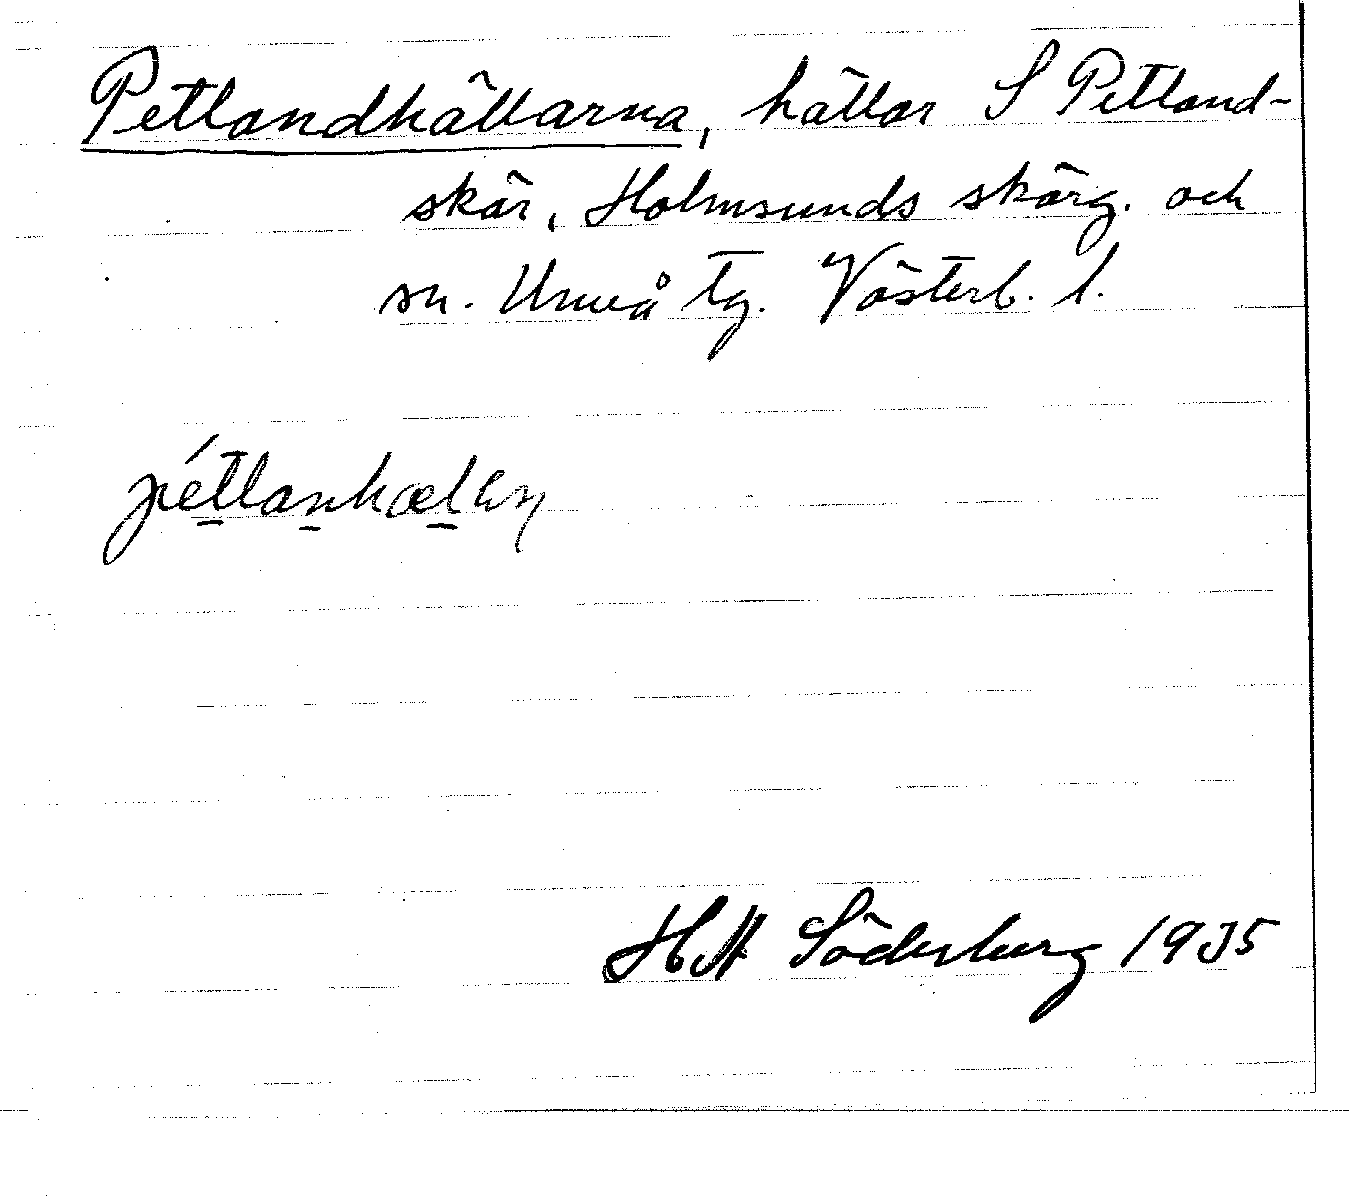 Petlandhällarna, hällar S Petland-
skär, Holmsunds skärg. och
sn. Umeå tg. Västerb. l.
Söderberg 1935